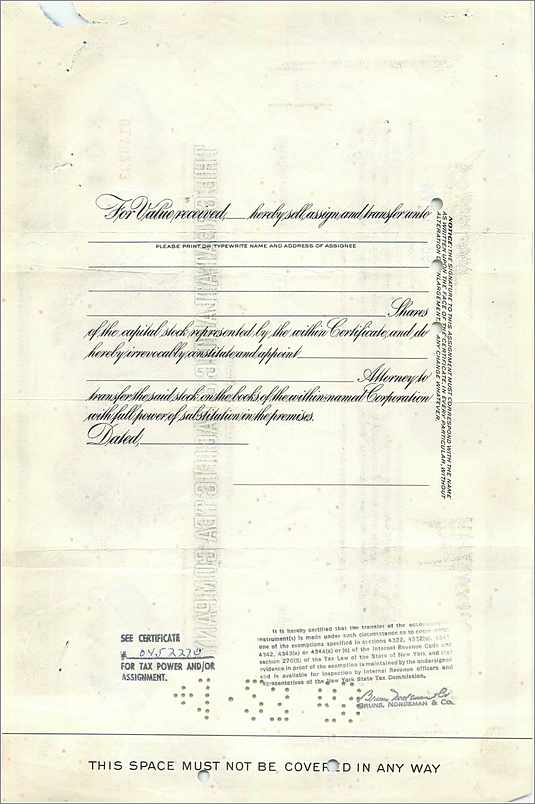 For Value received, hereby sell, assign and transfer unto
PLEASE PRINT OR TYPEWRITE NAME AND ADDRESS OF ASSIGNEE
Shares
of the capital stock represented by the within Certificate, and do
hereby irrevocably constitute and appoint
Attorney to
transfer the said stock on the books of the within-named Corporation
with full power of substitution in the premises.
Dated,
NOTICE: THE SIGNATURE TO THIS ASSIGNMENT MUST CORRESPOND WITH THE NAME
AS WRITTEN UPON THE FACE OF THE CERTIFICATE, IN EVERY PARTICULAR, WITHOUT
ALTERATION OR ENLARGEMENT, OR ANY CHANGE WHATEVER.
SEE CERTIFICATE
#
FOR TAX POWER AND/OR
ASSIGNMENT.
It is hereby certified that the transfer of the
instrument(s) is made under such circumstance as to
one of the exemptions specified in sections 4322, 4332(a), 4341
4342, 4343(a) or 4344(a) or (b) of the Internal Revenue Code and
section 270(5) of the Tax Law of the State of New York and that
evidence in proof of the exemption is maintained by the undersigned
and is available for inspection by Internal Revenue officers and
representatives of the New York State Tax Commission.
BRUNS, NORDEMAN & CO.
THIS SPACE MUST NOT BE COVERED IN ANY WAY